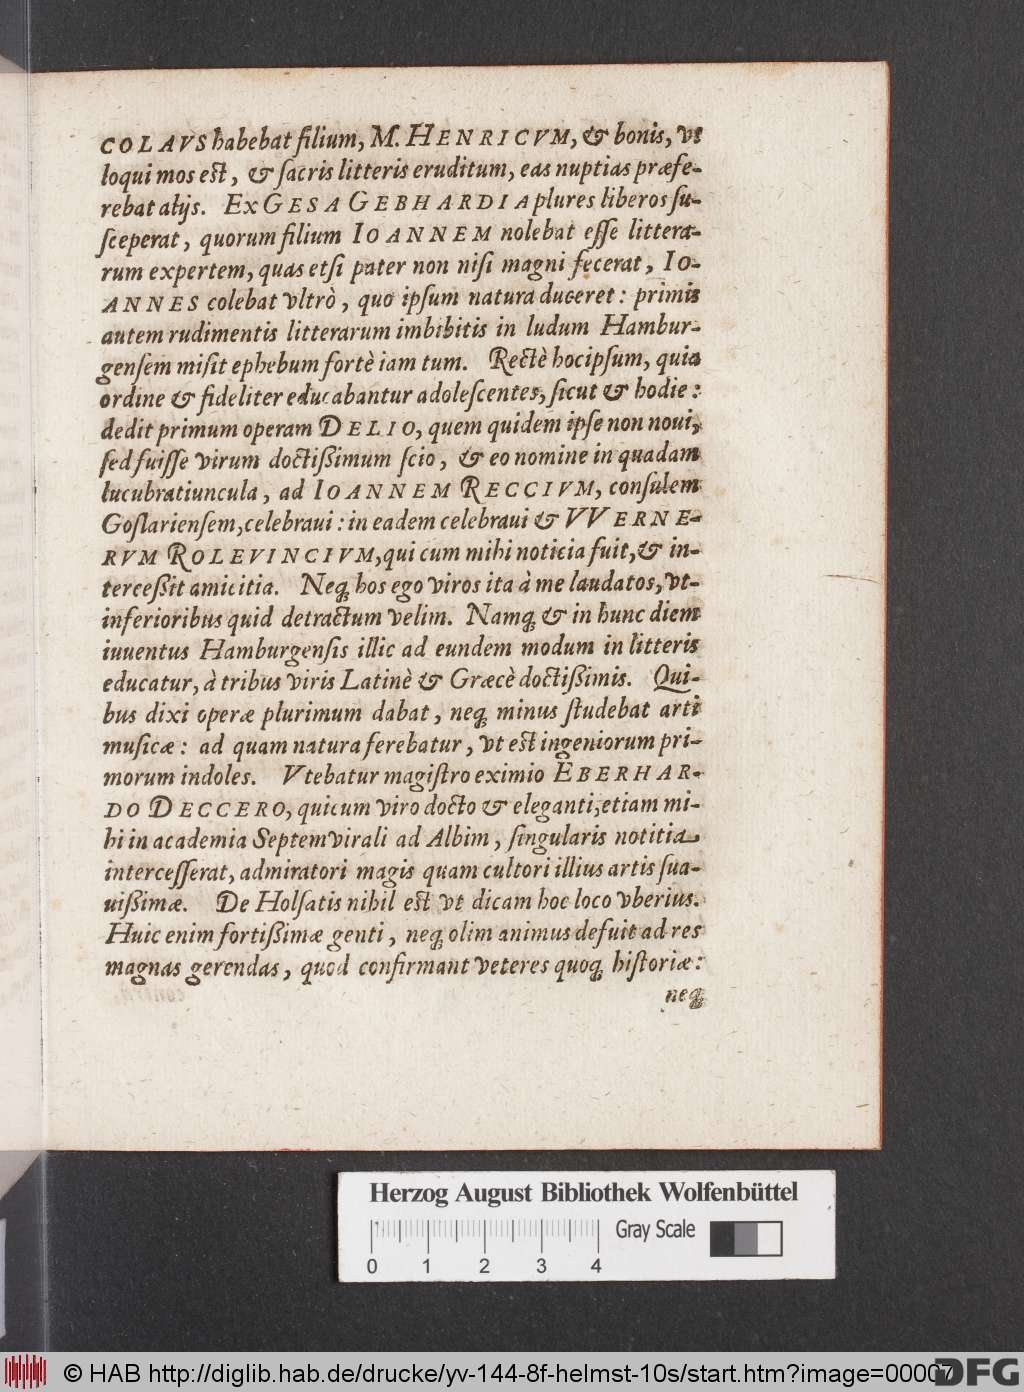 COLAVS habebat filium, M. HENRICVM, & bonis, vt
loqui mos est, & sacris litteris eruditum, eas nuptias præfe-
rebat alijs. Ex GESA GEBHARDIA plures liberos su-
sceperat, quorum filium IOANNEM nolebat esse littera-
rum expertem, quas etsi pater non nisi magni fecerat, IO-
ANNES colebat vltrò, quo ipsum natura duceret: primis
autem rudimentis litterarum imbibitis in ludum Hambur-
gensem misit ephebum fortè iam tum. Rectè hoc ipsum, quia
ordine & fideliter educabantur adolescentes, sicut & hodie:
dedit primum operam DELIO, quem quidem ipse non noui,
sed fuisse virum doctißimum scio, & eo nomine in quadam
lucubratiuncula, ad IOANNEM RECCIVM, consulem
Goslariensem, celebraui: in eadem celebraui & VVERNE-
RVM ROLEVINCIVM, qui cum mihi noticia fuit, & in-
terceßit amicitia. Neq; hos ego viros ita à me laudatos, vt
inferioribus quid detractum velim. Namq; & in hunc diem
iuuentus Hamburgensis illic ad eundem modum in litteris
educatur, à tribus viris Latinè & Græcè doctißimis. Qui-
bus dixi operæ plurimum dabat, neq; minus studebat arti
musicæ: ad quam natura ferebatur, vt est ingeniorum pri-
morum indoles. Vtebatur magistro eximio EBERHAR-
DO DECCERO, quicum viro docto & eleganti, etiam mi-
hi in academia Septemvirali ad Albim, singularis notitia
intercesserat, admiratori magis quam cultori illius artis sua-
uißimæ. De Holsatis nihil est vt dicam hoc loco vberius.
Huic enim fortißimæ genti, neq; olim animus defuit ad res
magnas gerendas, quod confirmant veteres quoq; historiæ:
neq;
Herzog August Bibliothek Wolfenbüttel
Gray Scale
0 1 2 3 4
© HAB http://diglib.hab.de/drucke/yv-144-8f-helmst-10s/start.htm?image=00007
DFG